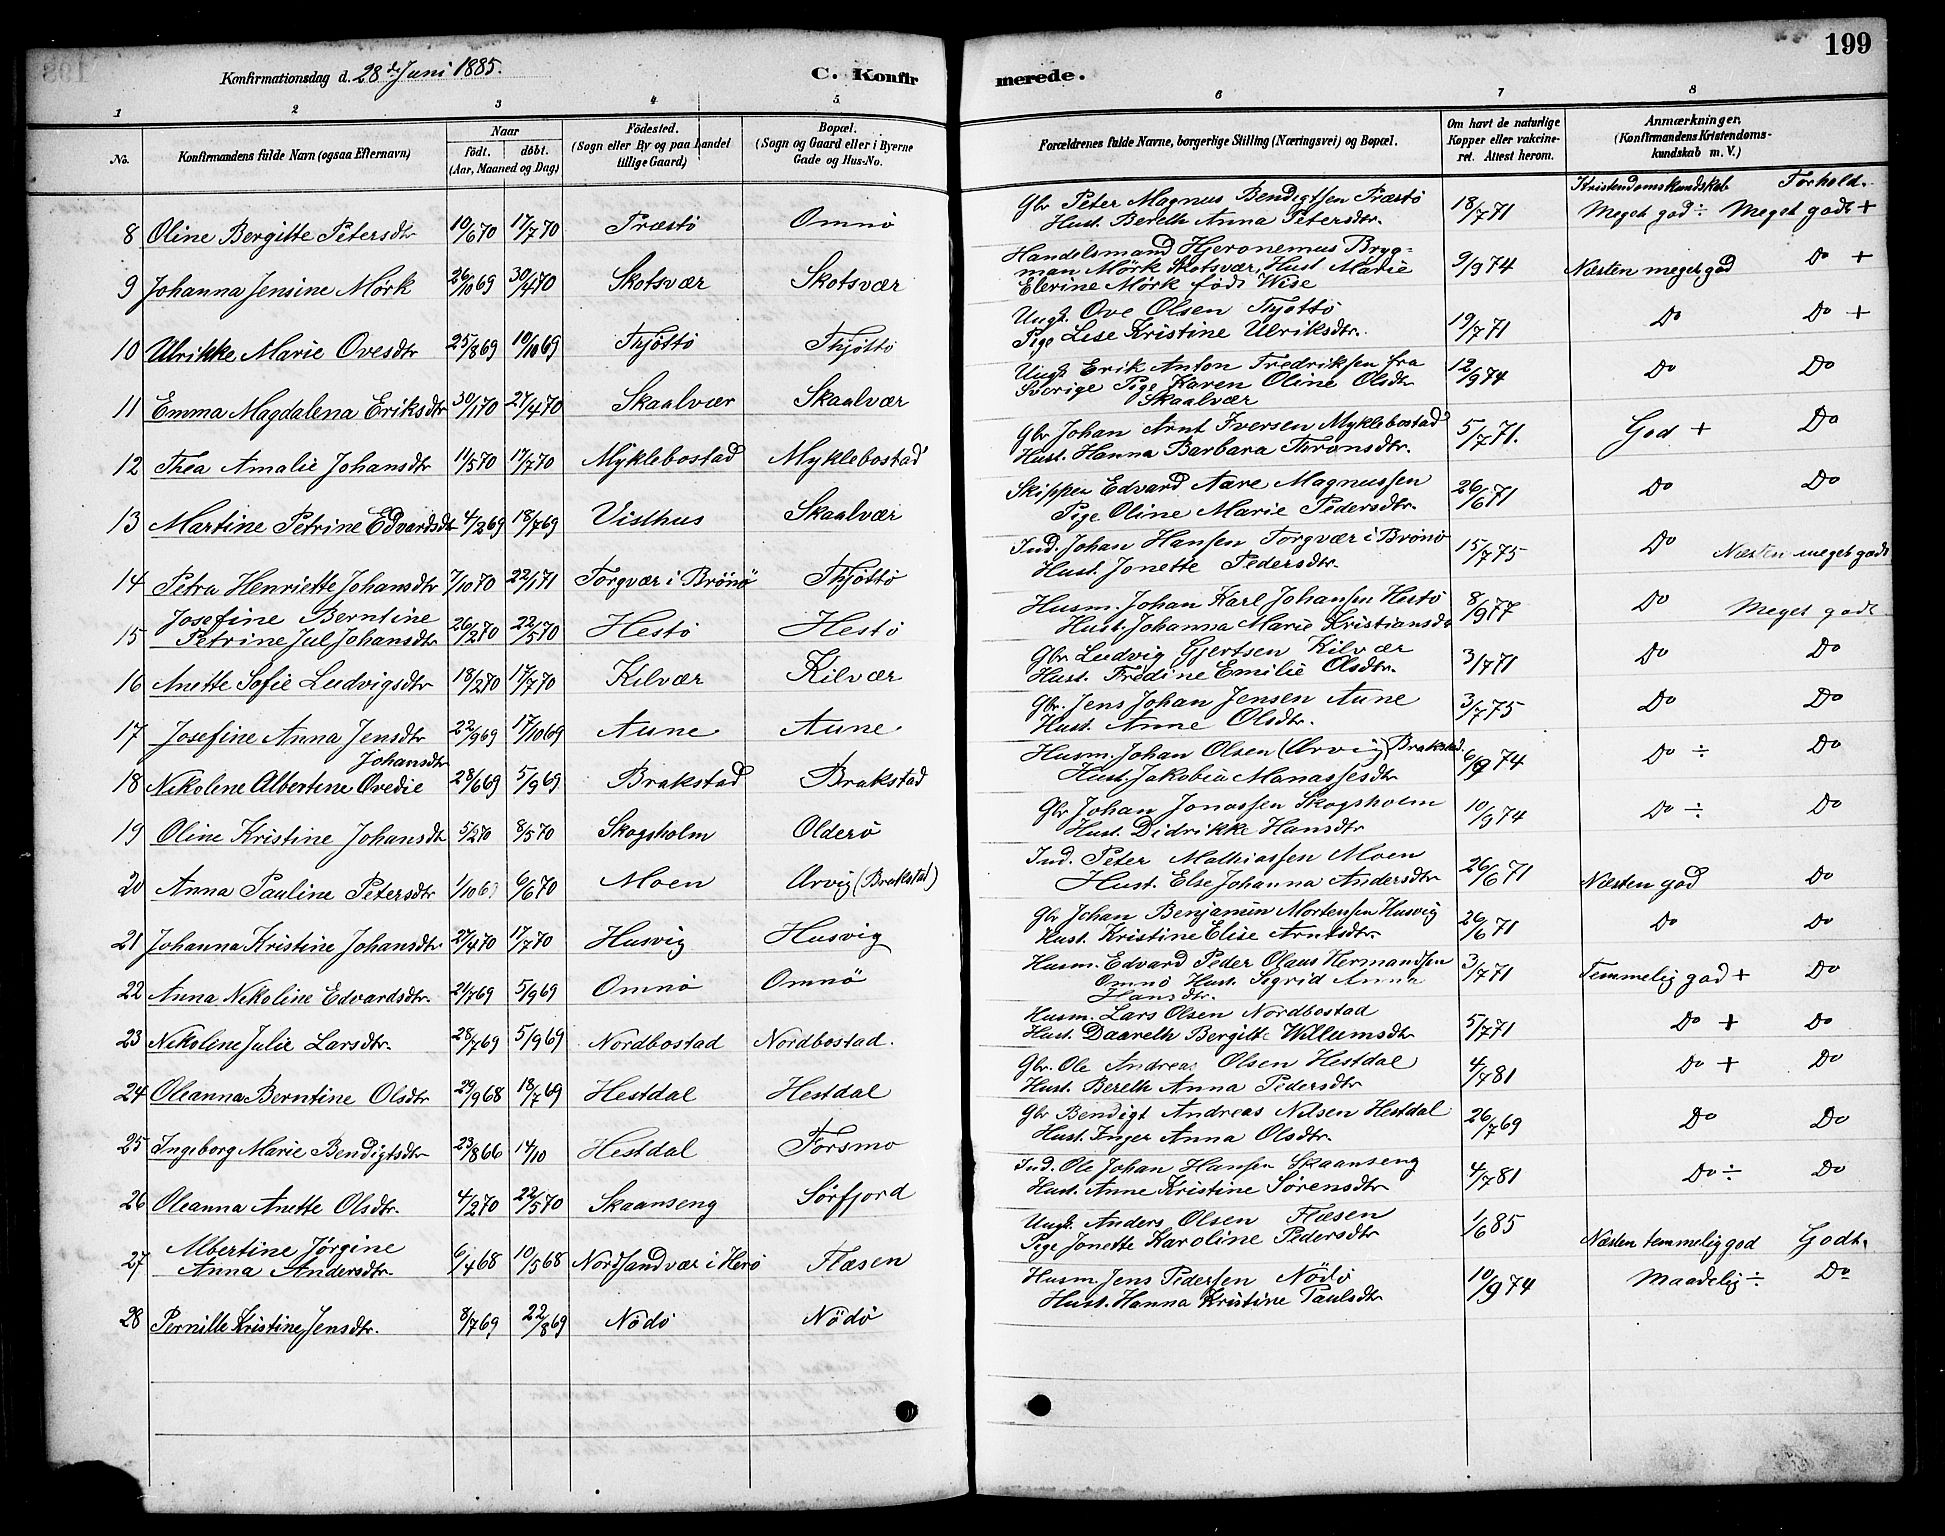 199
Konfirmationsdag d. 28de Juni 1885.
C. Konfirmerede.
1 2 3 4 5 6 7 8
No.
Konfirmandens fulde Navn (ogsaa Efternavn)
Naar
født. døbt.
(Aar, Maaned og Dag)
Fødested.
(Sogn eller By og paa Landet
tillige Gaard)
Bopæl.
(Sogn og Gaard eller i Byerne
Gade og Hus-No.
Forældrenes fulde Navne, borgerlige Stilling (Næringsvei) og Bopæl.
Om havt de naturlige
Kopper eller vakcine-
ret. Attest herom.
Anmærkninger.
(Konfirmandens Kristendoms-
kundskab m. V.)
Kristendomskundskab Forhold.
8 Oline Bergitte Petersdtr 10/6 70 17/7 70 Træstø Omnø Gbr Peter Magnus Bendigtsen Træstø 18/7 71 Meget god ÷ Meget godt +
Hust. Bereth Anna Petersdtr.
9 Johanna Jensine Mörk 26/10 69 30/4 70 Skotsvær Skotsvær Handelsmand Hjeronemus Bryg- 9/9 74 Næsten meget god Do +
man Mörk Skotsvær, Hust Marie
Elerine Mörk födt Wise
10 Ulrikke Marie Ovesdtr 25/8 69 10/10 69 Thjöttö Thjöttö Ungk. Ove Olsen Thjöttö 19/7 71 Do Do +
Pige Lise Kristine Ulriksdtr.
11 Emma Magdalena Eriksdtr 30/1 70 27/4 70 Skaalvær Skaalvær Ungk Erik Anton Fredriksen fra 12/9 74 Do Do
Sverige Pige Karen Oline Olsdtr
Skaalvær
12 Thea Amalie Johansdtr 11/5 70 17/7 70 Myklebostad Myklebostad Gbr Johan Arnt Iversen Myklebostad 5/7 71. God + Do
Hust. Hanna Barbara Thronsdtr.
13 Martine Petrine Edvardsdtr 4/2 69 18/7 69 Visthus Skaalvær Skipper Edvard Aare Magnussen 26/6 71 Do Do
Pige Oline Marie Pedersdtr.
14 Petra Henriette Johansdtr 7/10 70 22/1 71 Torgvær i Brönö Thjöttö Ind. Johan Hansen Torgvær i Brönö 15/7 75 Do Næsten meget godt
Hust. Jonette Pedersdtr.
15 Josefine Berntine
Petrine Jul Johansdtr 26/2 70 22/5 70 Hestö Hestö Husm. Johan Karl Johansen Hestö 8/9 77 Do Meget godt
Hust. Johanna Marie Kristiansdtr
16 Anette Sofie Ludvigsdtr 18/2 70 17/7 70 Kilvær Kilvær Gbr. Ludvig Gjertsen Kilvær 3/7 71 Do Do
Hust. Fredine Emilie Olsdtr.
17 Josefine Anna Jensdtr 22/9 69 17/10 69 Aune Aune Gbr. Jens Johan Jensen Aune 3/7 75 Do Do
Hust. Anne Olsdtr.
18 Nikoline Albertine Ovedie Johansdtr 28/6 69 5/9 69 Brakstad Brakstad Husm. Johan Olsen (Arvig) Brakstad. 6/9 74 Do ÷ Do
Hust. Jakobia Manassesdtr
19 Oline Kristine Johansdtr 5/2 70 8/5 70 Skogsholm Olderö Gbr Johan Jonassen Skogsholm 10/9 74 Do ÷ Do
Hust. Didrikke Hansdtr
20 Anna Pauline Petersdtr 1/10 69 6/6 70 Moen Arvig (Brakstad) Ind. Peter Mathiassen Moen 26/6 71 Næsten god Do
Hust. Else Johanna Andersdtr
21 Johanna Kristine Johansdtr 27/4 70 17/7 70 Husvig Husvig Gbr Johan Benjamin Mortensen Husvig 26/6 71 Do Do
Hust. Kristine Elise Arntsdtr.
22 Anna Nikoline Edvardsdtr. 21/7 69 5/9 69 Omnö Omnö Husm. Edvard Peder Olaus Hermandsen 3/7 71 Temmelig god + Do
Omnö Hust. Sigrid Anna
Hansdtr.
23 Nikoline Julie Larsdtr. 28/7 69 5/9 69 Nordbostad Nordbostad. Husm. Lars Olsen Nordbostad 5/7 71 Do + Do
Hust. Daareth Bergitte Willumsdtr
24 Oleanna Berntine Olsdtr 29/9 68 18/7 69 Hestdal Hestdal Gbr. Ole Andreas Olsen Hestdal 4/7 81 Do + Do
Hust. Bereth Anna Pedersdtr
25 Ingeborg Marie Bendigtsdtr 23/8 66 14/10 Hestdal Forsmo Gbr Bendigt Andreas Nilsen Hestdal 26/7 69 Do Do
Hust. Inger Anna Olsdtr.
26 Oleanna Anette Olsdtr. 4/2 70 22/5 70 Skaanseng Sörfjord Ind. Ole Johan Hansen Skaanseng 4/7 81 Do ÷ Do
Hust. Anne Kristine Sörensdtr
27 Albertine Jörgine
Anna Andersdtr. 6/4 68 10/5 68 Nordsandvær i Herö Flæsen Ungk. Anders Olsen Flæsen 1/6 85 Næsten temmelig god Godt.
Pige Jonette Karoline Pedersdtr
28 Pernille Kristine Jensdtr. 8/7 69 22/8 69 Nödö Nödö Husm. Jens Pedersen Nödö 10/9 74 Maadelig ÷ Do
Hust. Hanna Kristine Paulsdtr